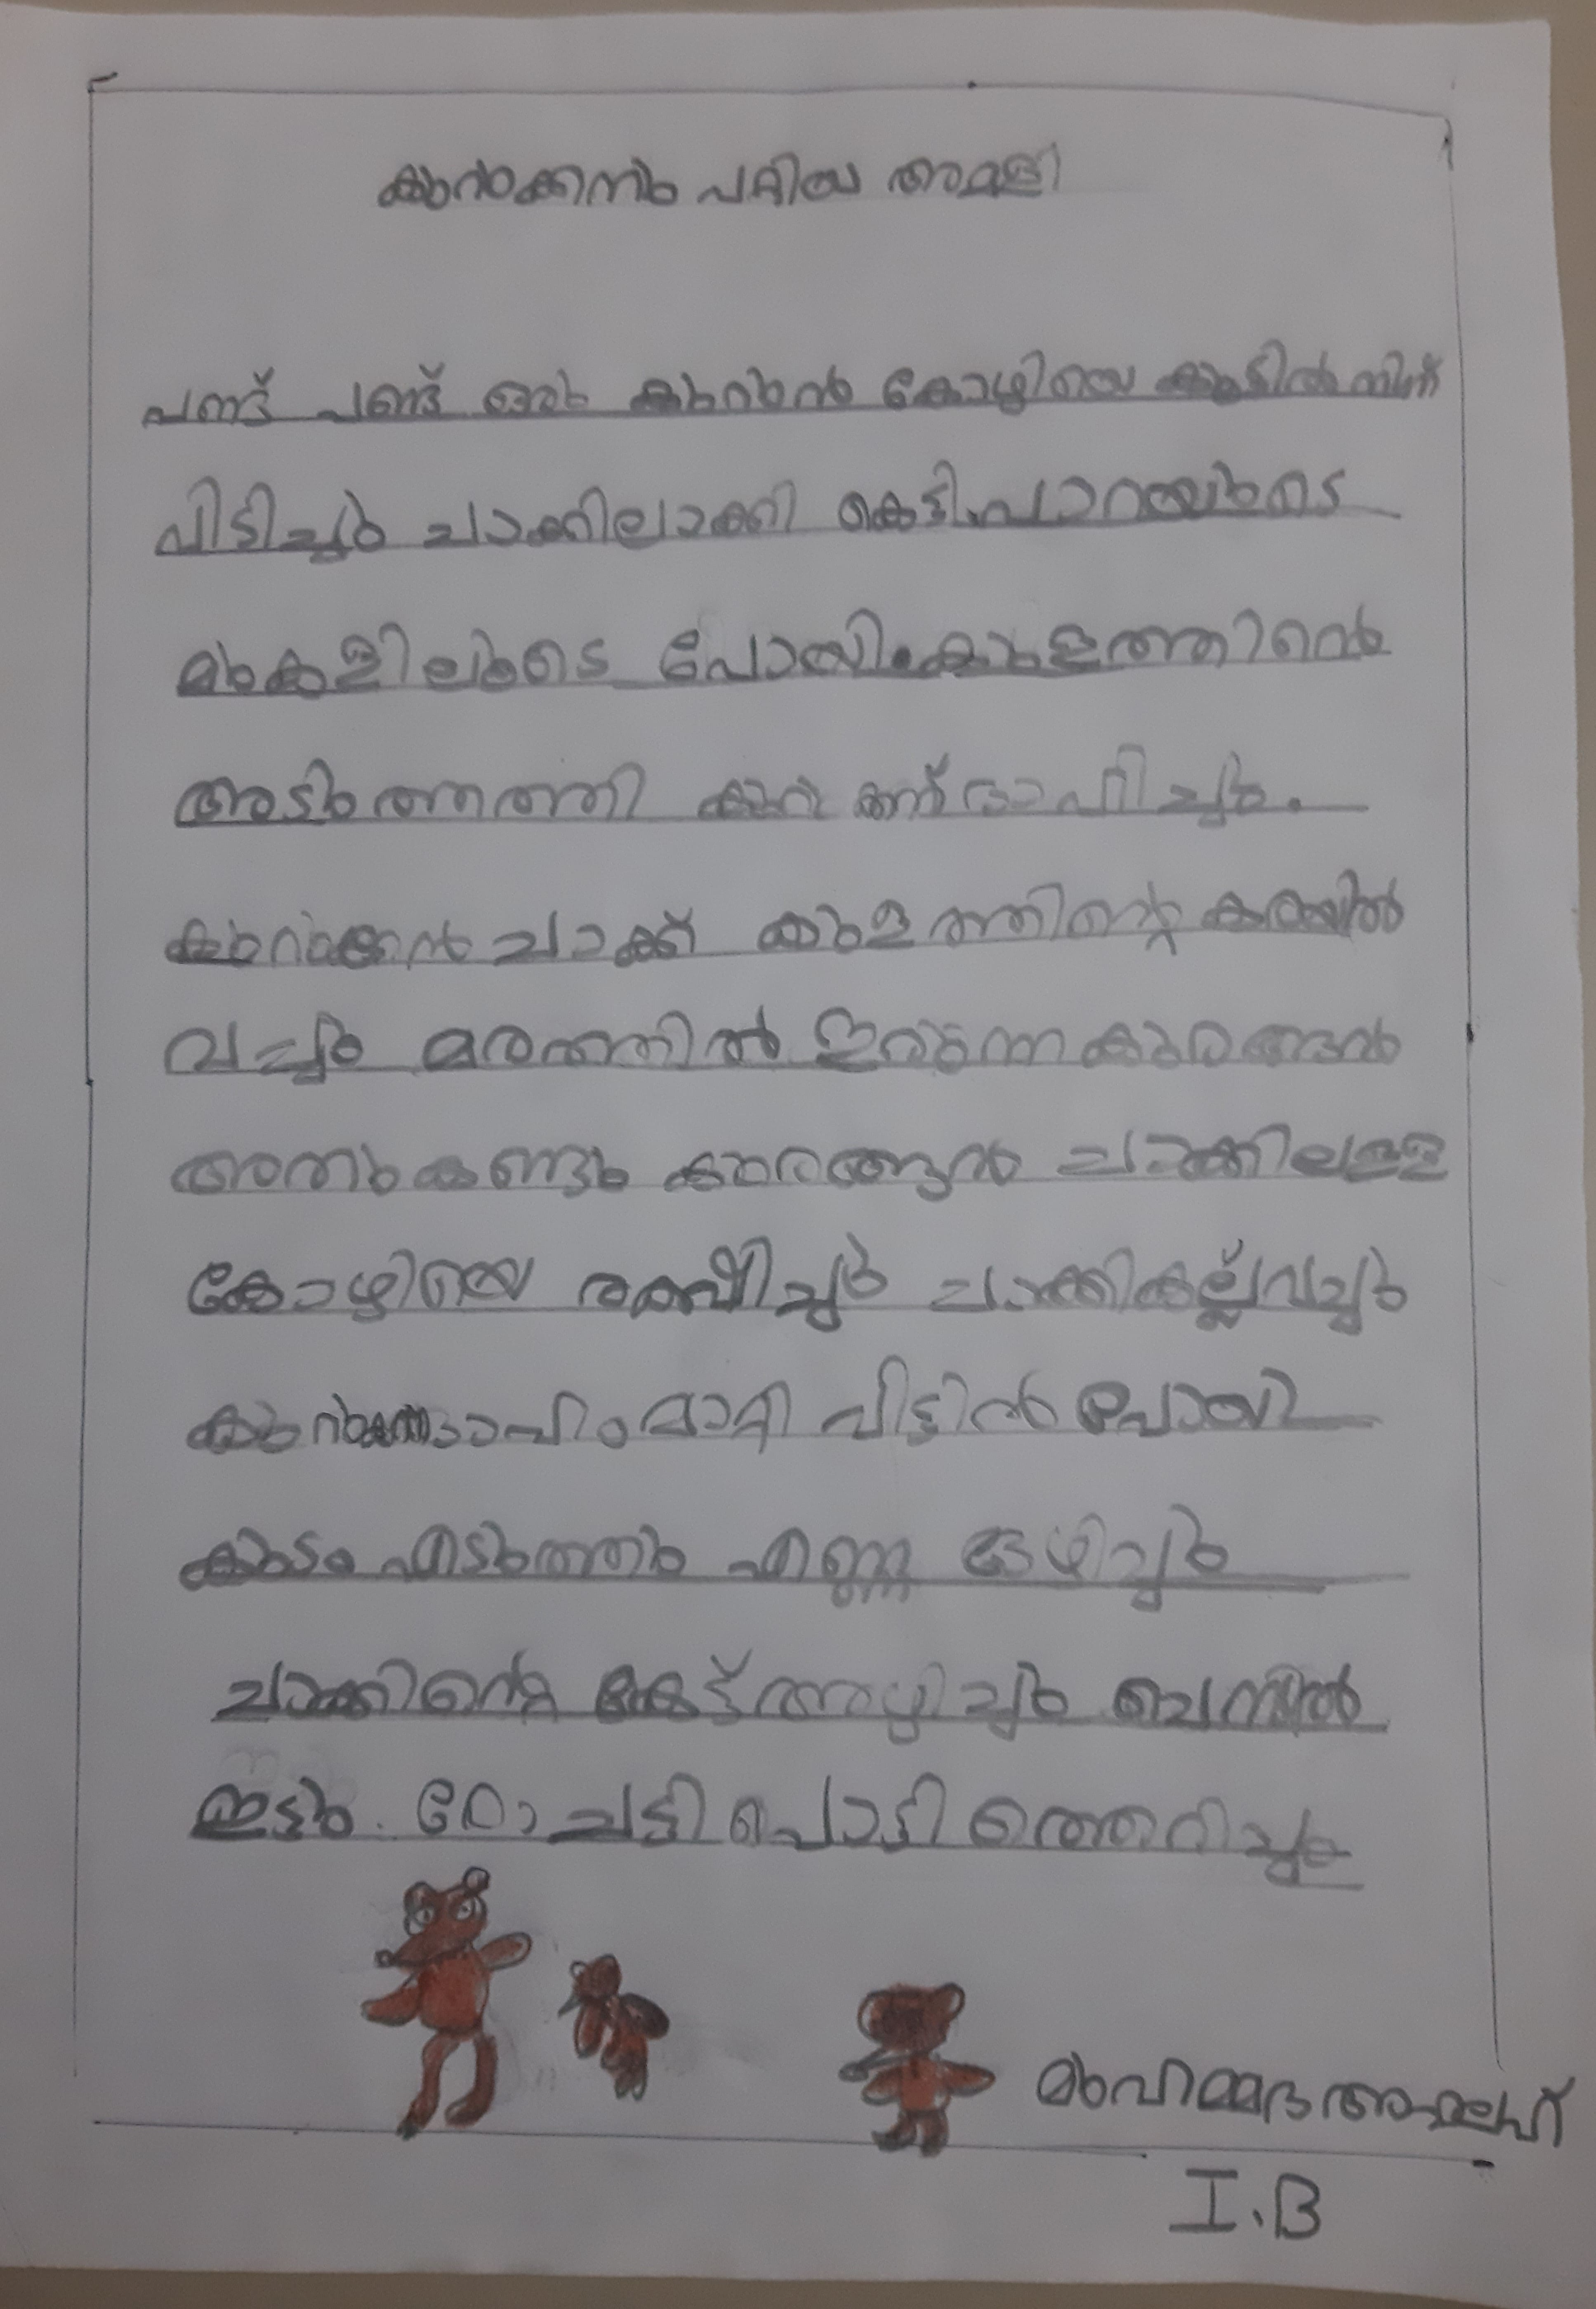 കുറുക്കനും പറ്റിയ അമളി
പണ്ട് പണ്ട് ഒരു കുറുക്കൻ കോഴിയെ കൂട്ടിൽ നിന്ന്
പിടിച്ചു ചാക്കിലാക്കി കെട്ടി പാറയുടെ
മുകളിലൂടെ പോയി കുളത്തിൻെ
അടുത്തത്തി ദാഹിച്ചു.
കുറുക്കൻ ചാക്ക് കുളത്തിന്റെ കരയിൽ
വച്ചു മരത്തിൽ ഇരുന്ന കുരങ്ങൻ
അതു കണ്ടു കുരങ്ങൻ ചാക്കിലുള്ള
കോഴിയെ രക്ഷിച്ചു ചാക്കികല്ല് വച്ചു
ദാഹം മാറ്റി വീട്ടിൽ പോയി
കുടം എടുത്തു എണ്ണ ഒഴിച്ചു
ചാക്കിന്റെ കെട്ട് അഴിച്ചു
ഇട്ടു. ഠോ ചട്ടി പൊട്ടി ത്തെറിച്ചു
മുഹമ്മദ
I.B